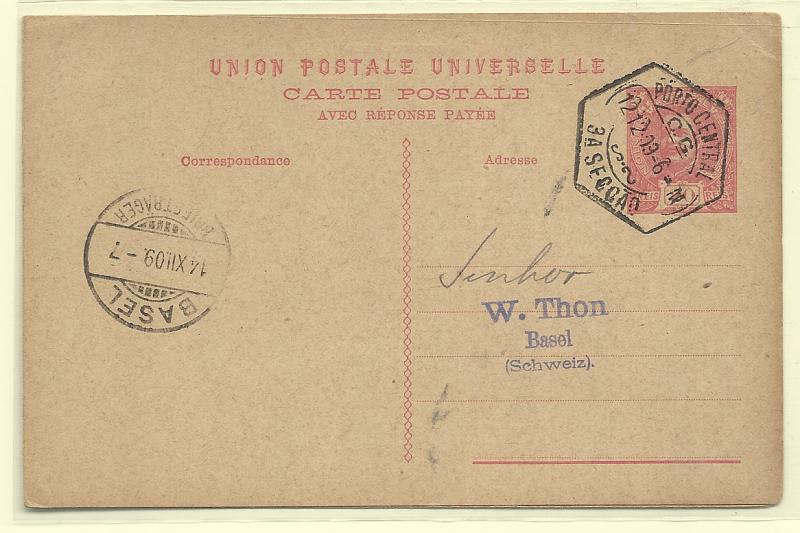 UNION POSTALE UNIVERSELLE
CARTE POSTALE
AVEC RÉPONSE PAYÉE
PORTO CENTRAL
C.G.
12-12-09-6-M
3A SECCÃO
REIS
Correspondance
Adresse
BRIEFTRÄGER
14.XII.09.-7
BASEL
Senhor
W. Thon
Basel
(Schweiz).